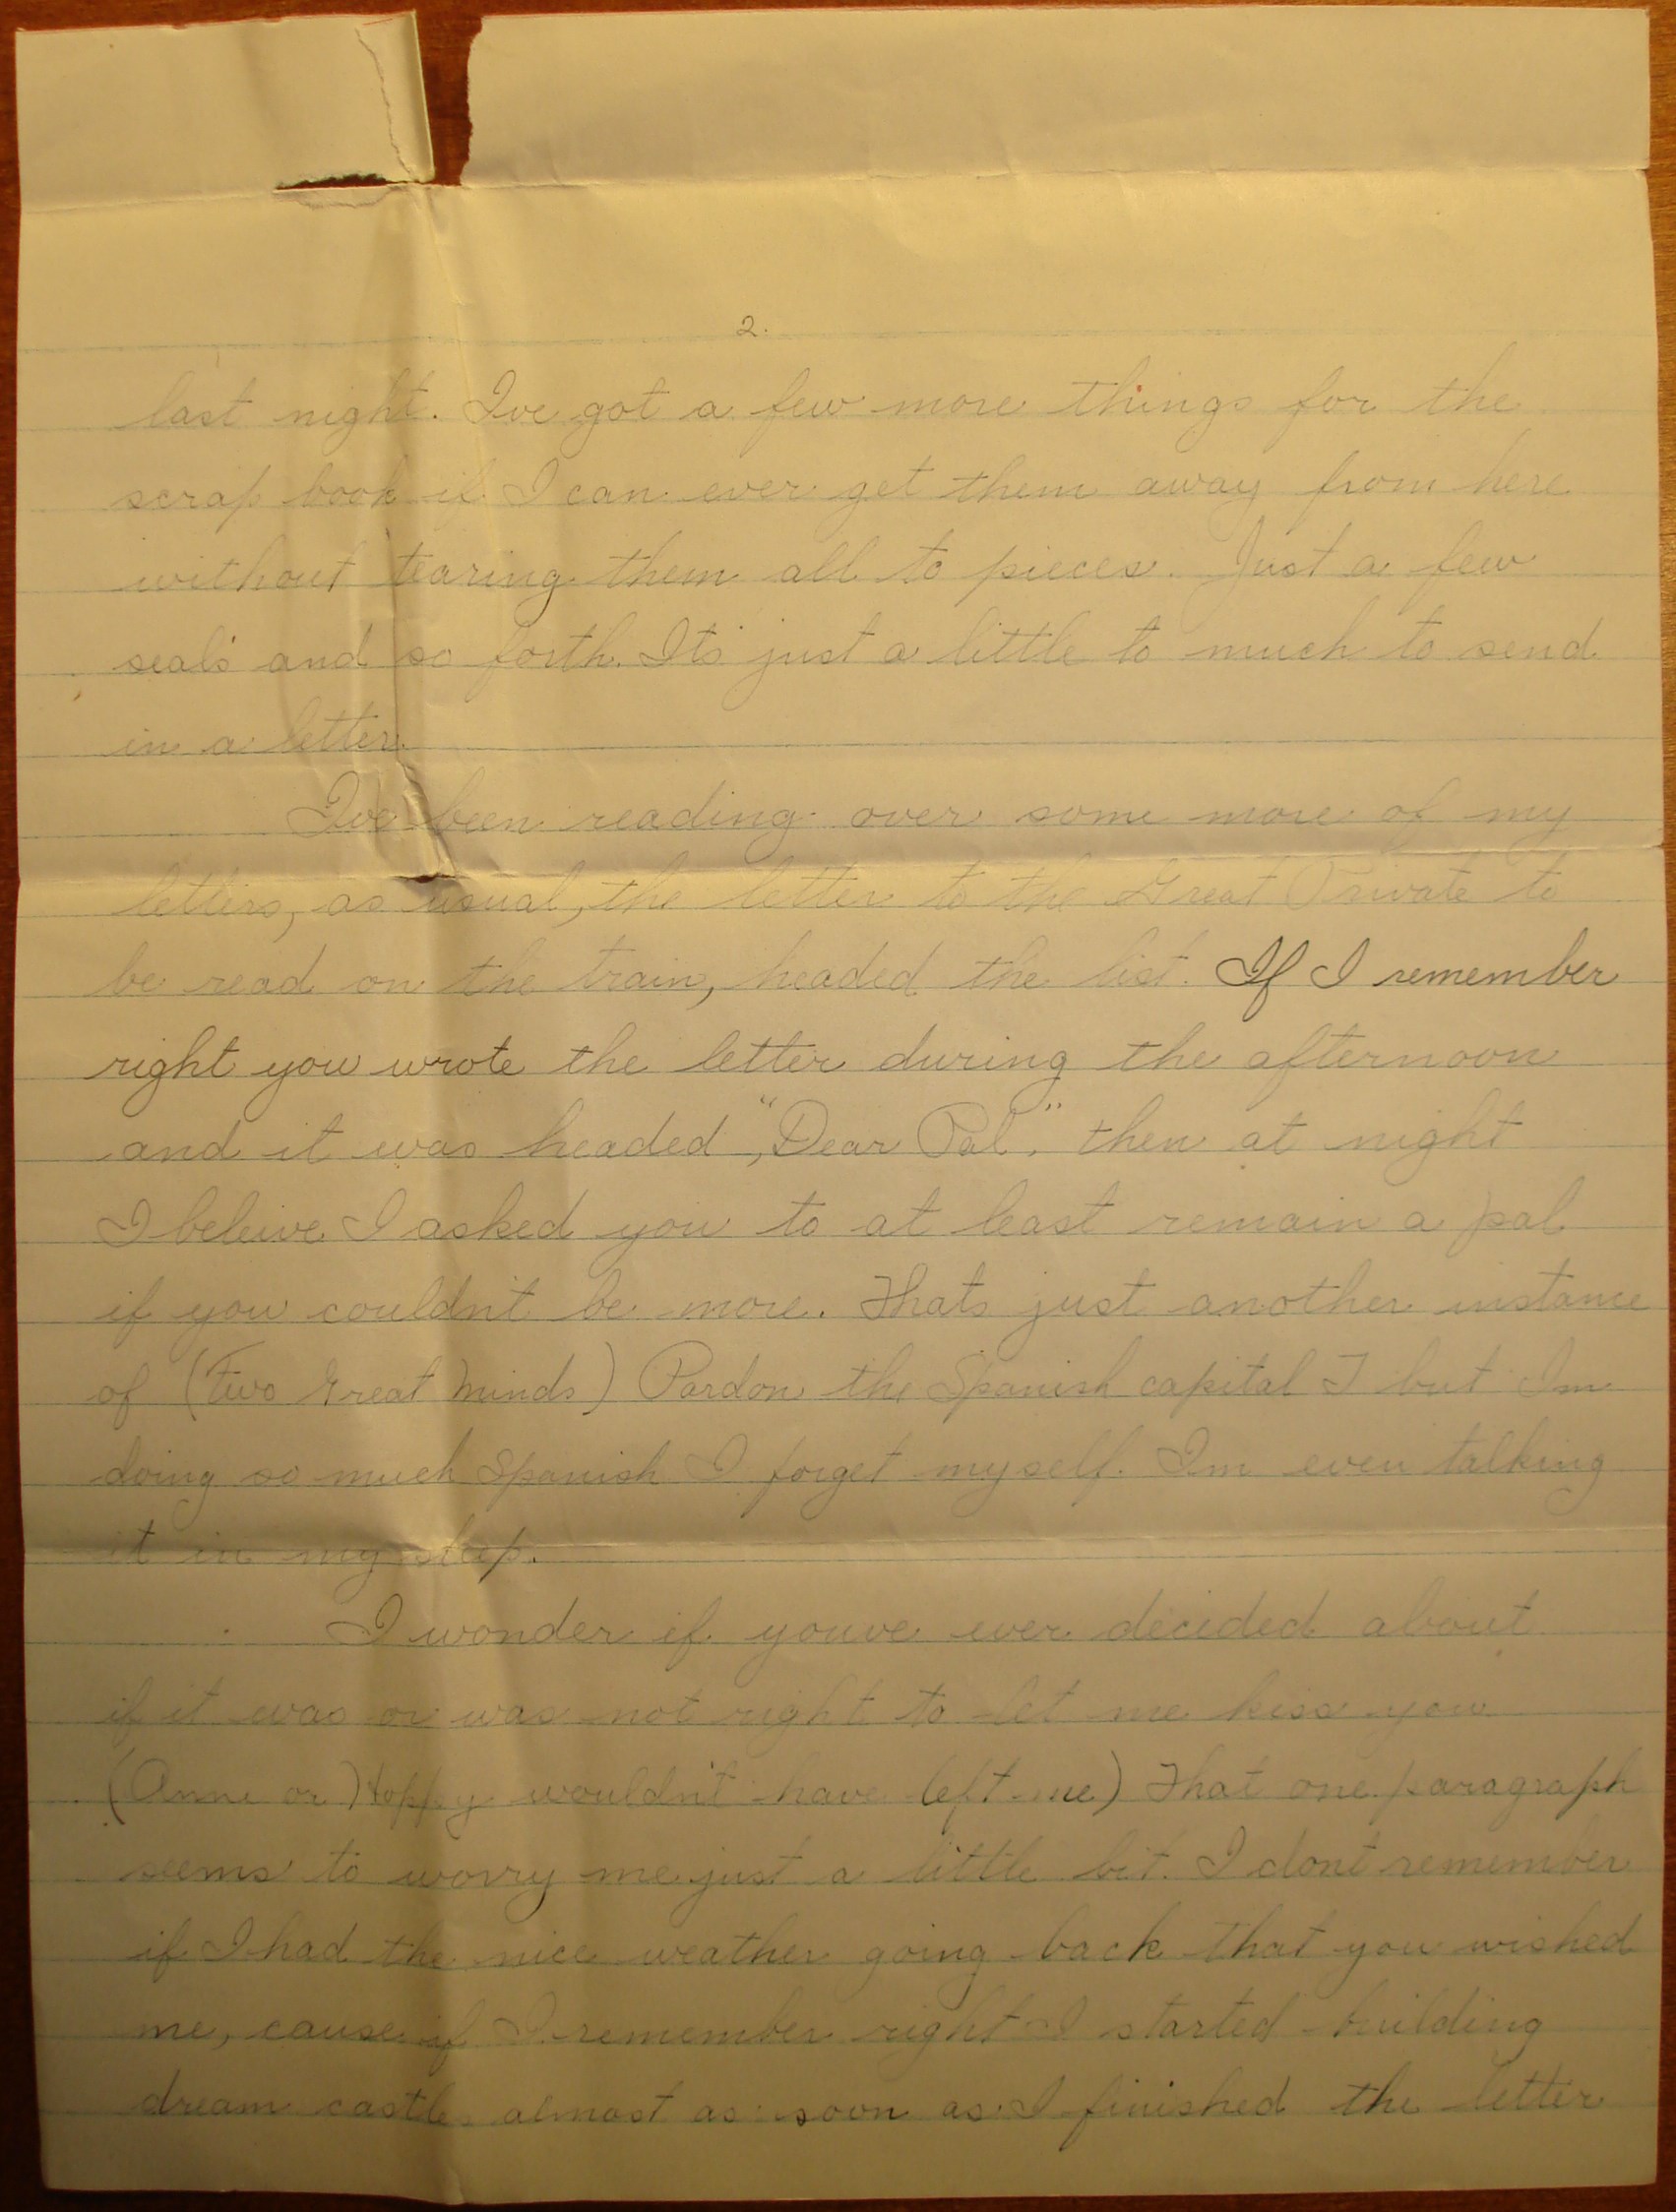 2.
last night. Ive got a few more things for the
scrap book if I can ever get them away from here
without tearing them all to pieces. Just a few
seals and so forth. Its just a little to much to send
in a letter.
Ive been reading over some more of my
letters, as usual, the letter to the Great Private to
be read on the train, headed the list. If I remember
right you wrote the letter during the afternoon
and it was headed, "Dear Pal", then at night
I beleive I asked you to at least remain a pal
if you couldn't be more. Thats just another instance
of (Two Great Minds) Pardon the Spanish capital I but Im
doing so much Spanish I forget myself. Im even talking
it in my sleep.
I wonder if youve ever decided about
if it was or was not right to let me kiss you
(Anne or) wouldn't have left me) That one paragraph
seems to worry me just a little bit. I dont remember
if I had the nice weather going back that you wished
me, cause if I remember right I started building
dream castles almost as soon as I finished the letter